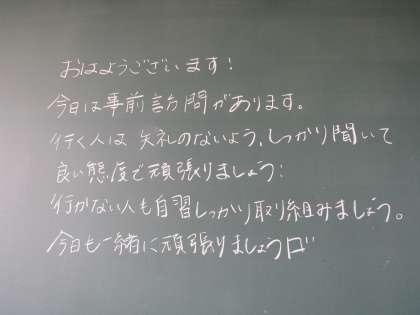 おはようございます!
今日は事前訪問があります。
行く人は失礼のないよう、しっかり聞いて
良い態度で頑張りましょう!
行かない人も自習しっかり取り組みましょう。
今日も一緒に頑張りましょう